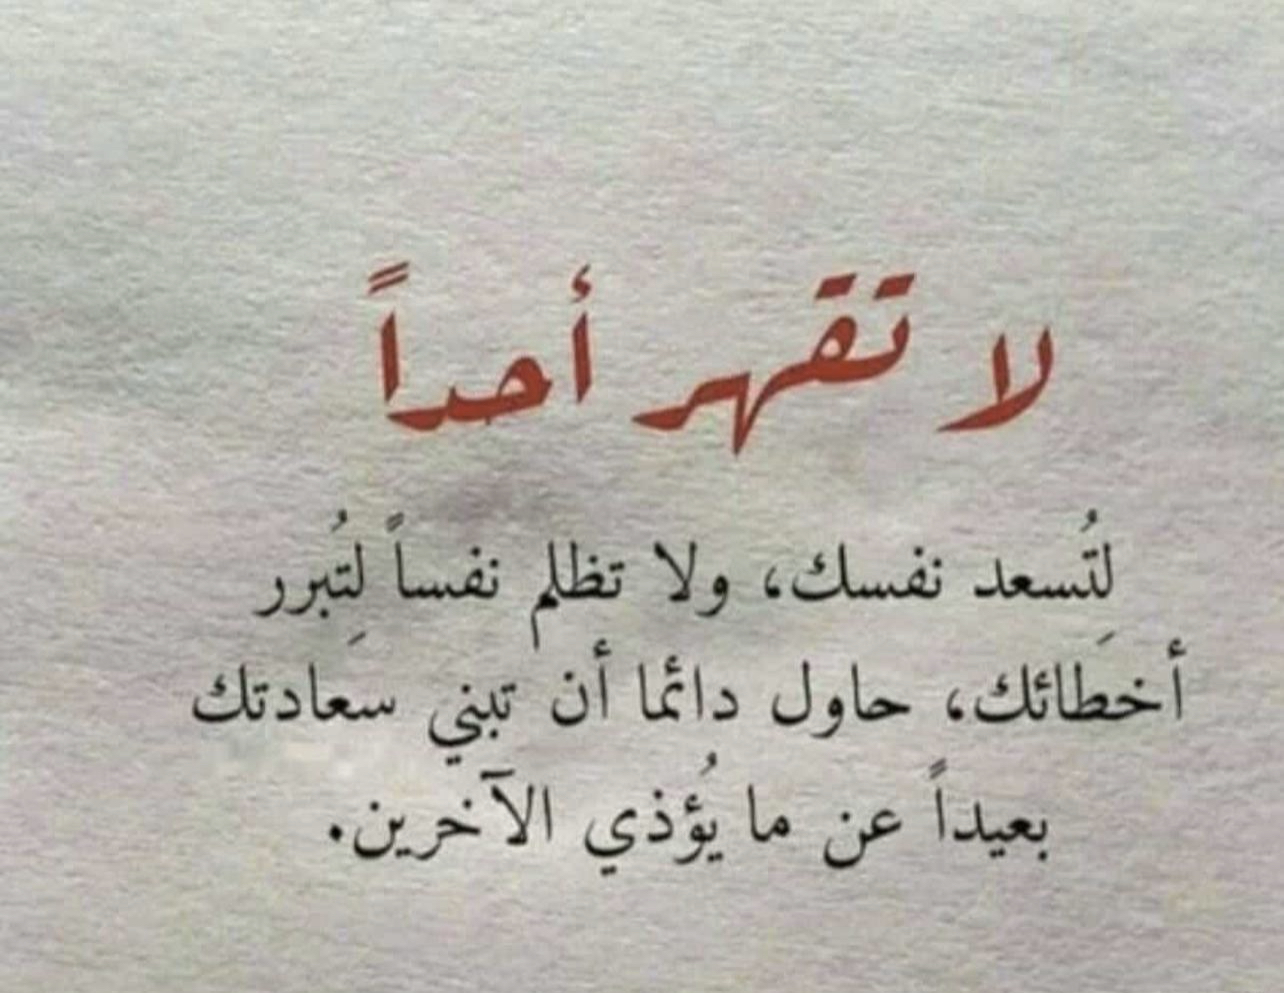 لا تقهر أحداً
لِتُسعد نفسك، ولا تظلم نفساً لِتُبرر
أخطائك، حاول دائما أن تبني سعادتك
بعيداً عن ما يُؤذي الآخرين.